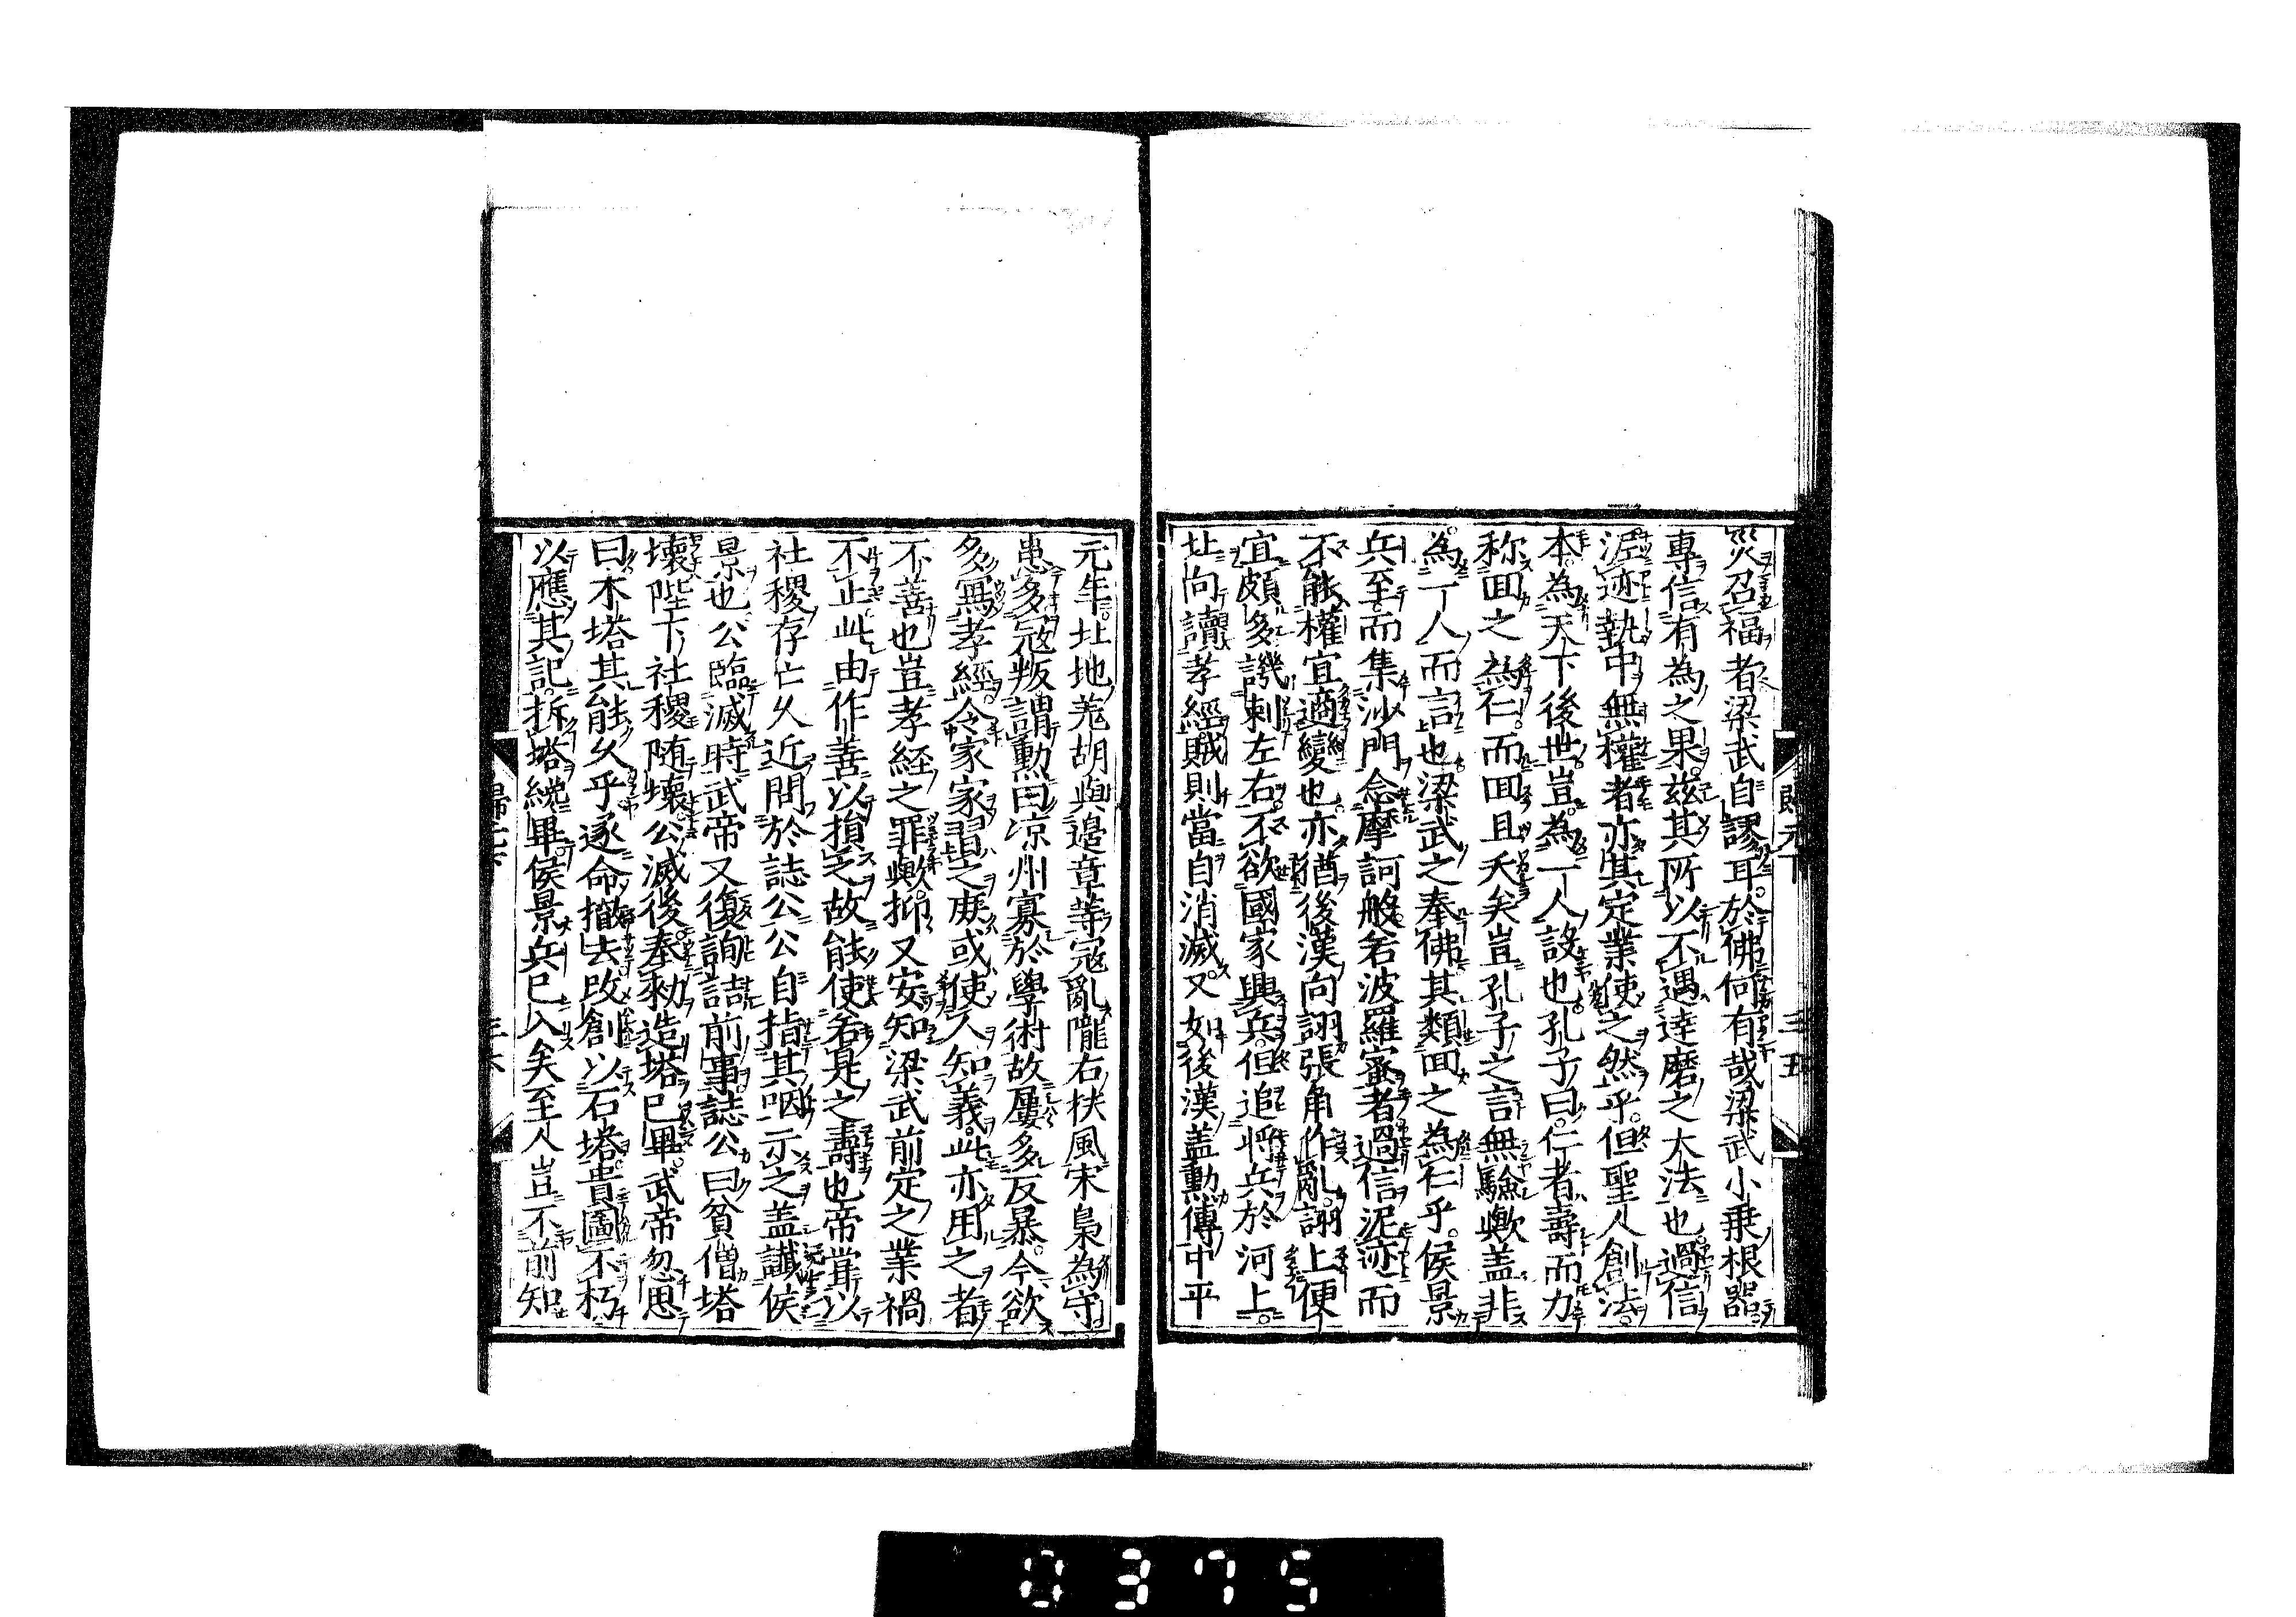 災召福者梁武自謬耳於佛何有哉梁武小乗根器
專信有為之果茲其所以不遇達磨之大法也過信
泥迹執中無權者亦其定業使之然乎但聖人創法
本為天下後世豈為一人設也孔子曰仁者壽而力
称回之為仁而回且夭矣豈孔子之言無驗歟盖非
為一人而言也梁武之奉佛其類回之為仁乎侯景
兵至而集沙門念摩訶般若波羅蜜者過信泥迹而
不能權宜適變也亦猶後漢向詡張角作亂詡上便
宜頗多譏刺左右不欲國家興兵但追將兵於河上
北向讀孝經賊則當自消滅又如後漢盖勳傳中平
元年北地羗胡與邉章等冦亂隴右扶風宋梟為守
患多冦叛謂勳曰凉州寡於學術故屢多反暴今欲
多寫孝經令家家習之庶或使人知義此亦用之者
不善也豈孝経之罪歟抑又安知梁武前定之業禍
不止此由作善以損之故能使若是之壽也帝嘗以
社稷存亡久近問於誌公公自指其咽示之盖讖侯
景也公臨滅時武帝又復詢詰前事誌公曰貧僧塔
壞陛下社稷随壞公滅後奉勅造塔已畢武帝忽思
曰木塔其能久乎遂命撤去改創以石塔貴圖不朽
以應其記拆塔纔畢侯景兵已入矣至人豈不前知
歸元下
三五
0375